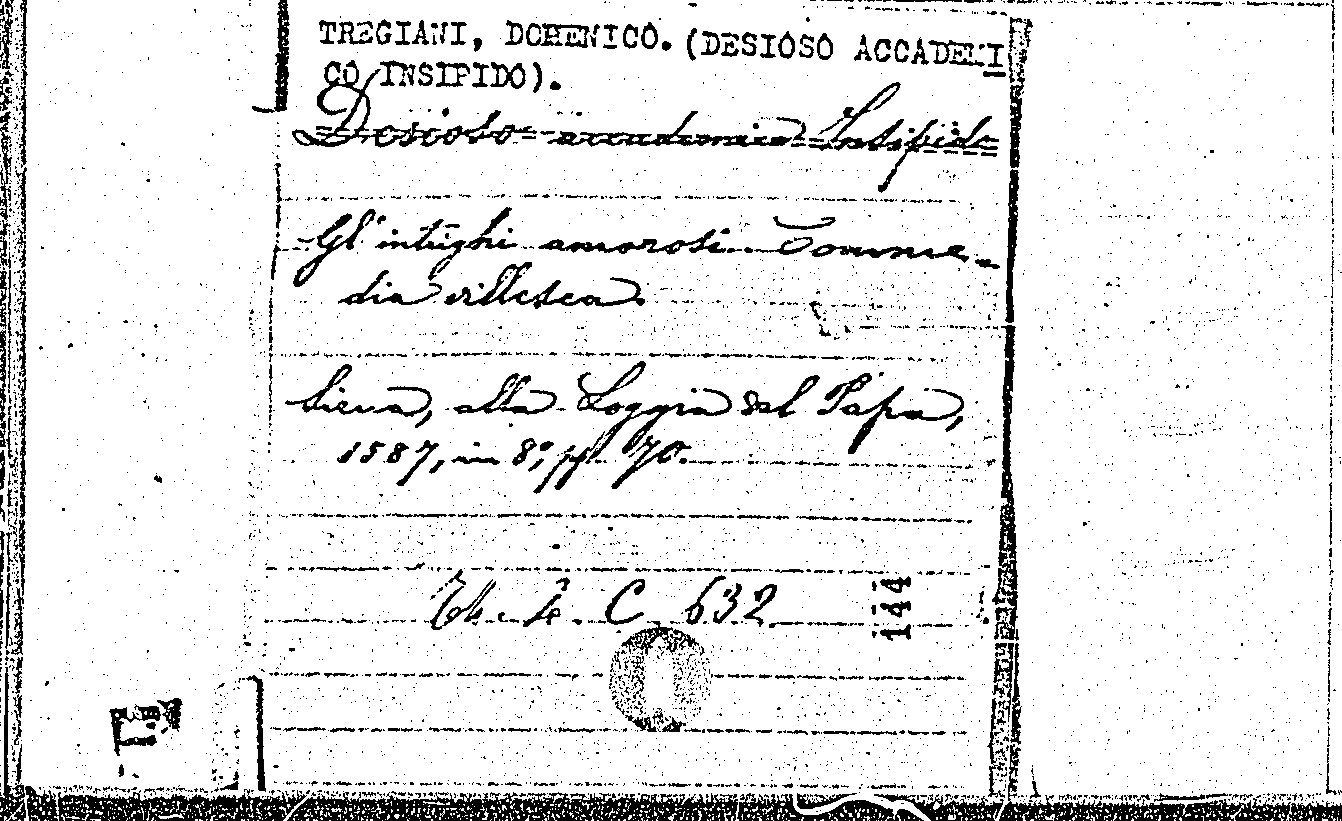 TREGIANI, DOMENICO. (DESIOSO ACCADEMI
CO INSIPIDO).
Desioso accademico Insipido
Gl'intrighi amorosi. Comme-
dia villesca.
Siena, alla Loggia del Papa,
1587, in 8°, pp. 70.
C 632
144